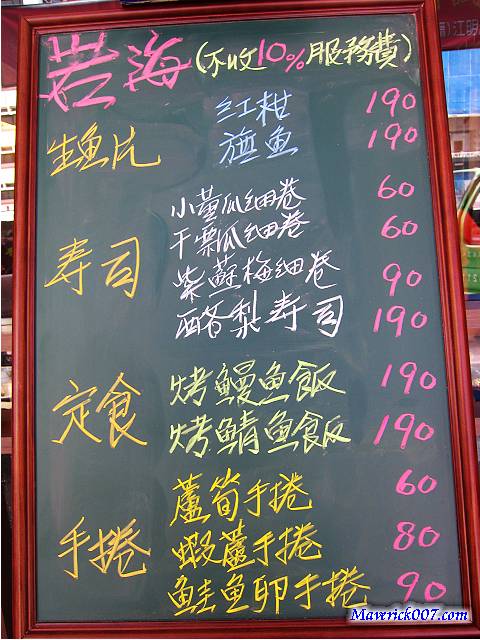 岩海(不收10%服務費)
生魚片 紅柑 190
旗魚 190
壽司 小黃瓜細卷 60
干瓢瓜細卷 60
紫蘇梅細卷 90
酪梨寿司 190
定食 烤鰻魚飯 190
烤鯖魚飯 190
手捲 蘆筍手捲 60
蝦蘆手捲 80
鮭魚卵手捲 90
Maverick007.com